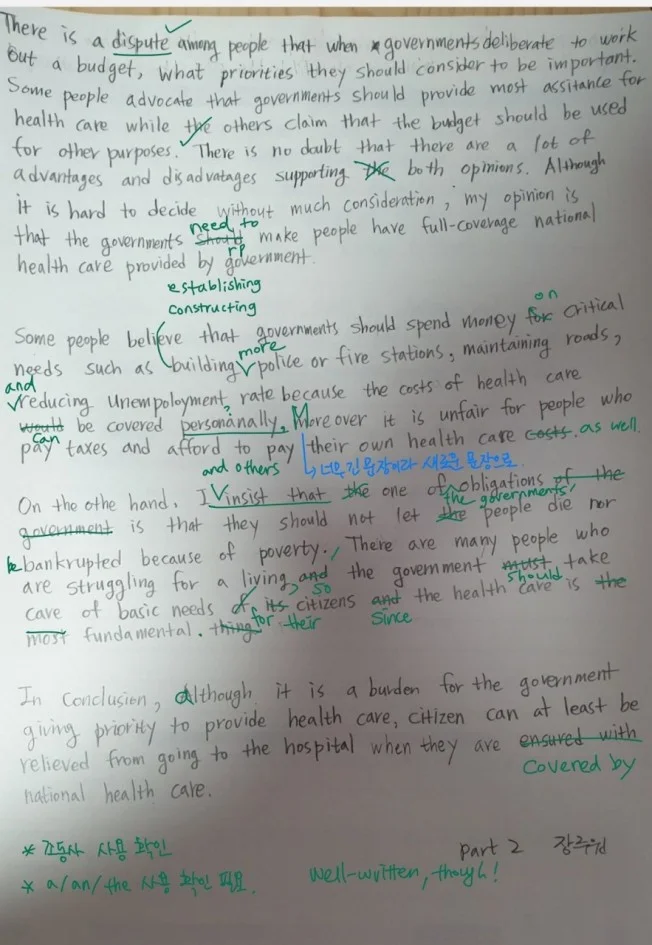 There is a dispute among people that when governments deliberate to work
out a budget, what priorities they should consider to be important.
Some people advocate that governments should provide most assitance for
health care while the others claim that the budget should be used
for other purposes. There is no doubt that there are a lot of
advantages and disadvatages supporting the both opinions. Although
it is hard to decide without much consideration, my opinion is
need to
that the governments should make people have full-coverage national
health care provided by government.
establishing
constructing
on
Some people believe that governments should spend money for critical
more
needs such as building police or fire stations, maintaining roads,
and
reducing unempoloyment rate because the costs of health care
would be covered personanally. Moreover it is unfair for people who
can
pay taxes and afford to pay their own health care costs. as well.
and others
너무 긴 문장이라 새로운 문장으로
On the othe hand, I insist that the one of obligations of the
the governments'
government is that they should not let the people die nor
be bankrupted because of poverty. There are many people who
are struggling for a living, and the government must take
so
should
care of basic needs of its citizens and the health care is the
for their
since
most fundamental. thing
In Conclusion, although it is a burden for the government
giving priority to provide health care, citizen can at least be
relieved from going to the hospital when they are ensured with
covered by
national health care.
* 조동사 사용 확인
part 2
* a/an/the 사용 확인 필요.
well-written, though!